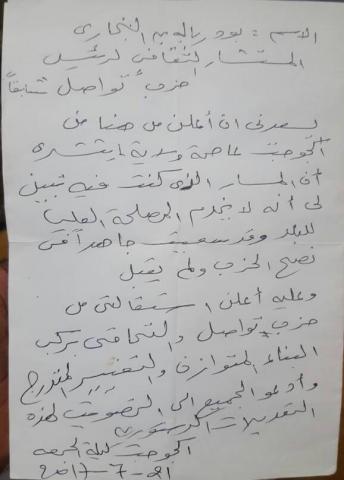 الاسم: بودرباله بن البخاري
المستشار الثقافي لرئيس
حزب تواصل سابقاً
يسعدني ان أعلن من هنا من
الحوحت عاصمة وسدية ايتشده
أن المسار الذي كنت فيه تبين
لي أنه لا يخدم المصلحة العليا
للبلد وقد سعيت جاهدا في
نصح الحزب ولم يقبل
وعليه أعلن استقالتي من
حزب تواصل والتحاقي بركب
البناء المتوازن والتغيير المتدرج
وأدعو الجميع الى التصويت لهذه
التعديلات الدستورية
الحوحت ليلة الجمعه
21-7-2017